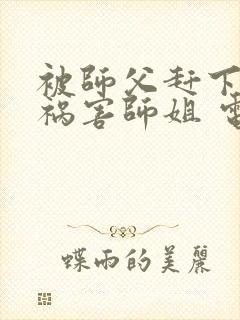 被師父赶下
禍害師姐
蝶雨的美麗